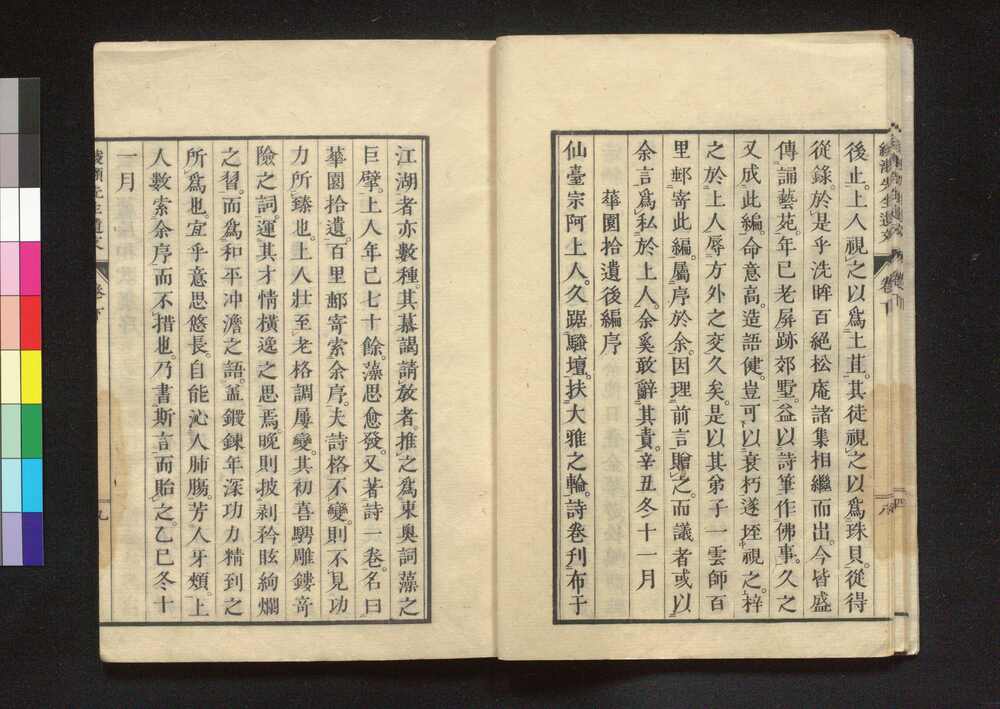 後止。上人視之以爲土苴。其徒視之以爲珠貝。從得
從錄。於是乎洗眸百絕松庵諸集相繼而出。今皆盛
傳誦藝苑。年已老屏跡郊墅。益以詩筆作佛事。久之
又成此編。命意高。造語健。豈可以衰朽遂垤視之。梓
之於上人辱方外之交久矣。是以其弟子一雲師百
里郵寄此編。屬序於余。因理前言贈之。而議者或以
余言爲私於上人。余奚敢辭其責。辛丑冬十一月
華園拾遺後編序
仙臺宗阿上人。久踞騷壇。扶大雅之輪。詩卷刋布于
江湖者亦數種。其慕謁請教者。推之爲東奧詞藻之
巨擘。上人年已七十餘。藻思愈發。又著詩一卷。名曰
華園拾遺。百里郵寄索余序。夫詩格不變。則不見功
力所臻也。上人壯至老格調屢變。其初喜騁雕鏤奇
險之詞。運其才情橫逸之思焉。晚則披剥矜眩絢爛
之習。而爲和平冲澹之語。葢鍛鍊年深功力精到之
所爲也。宜乎意思悠長。自能沁人肺腸。芳人牙頰。上
人數索余序而不措也。乃書斯言而貽之。乙巳冬十
一月
先生遺文 卷下 九